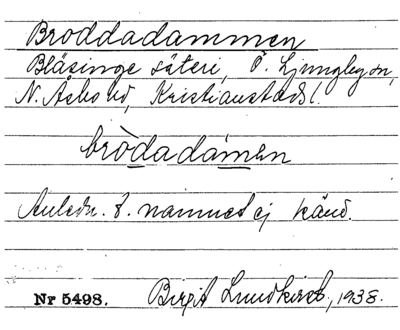 Broddadammen
Bläsinge säteri, Ö. Ljungby sn,
N. Åsbo hd, Kristianstads l.
bròdadámen
Anledn. t. namnet ej känd.
Nr 5498. Birgit Lundkvist, 1938.